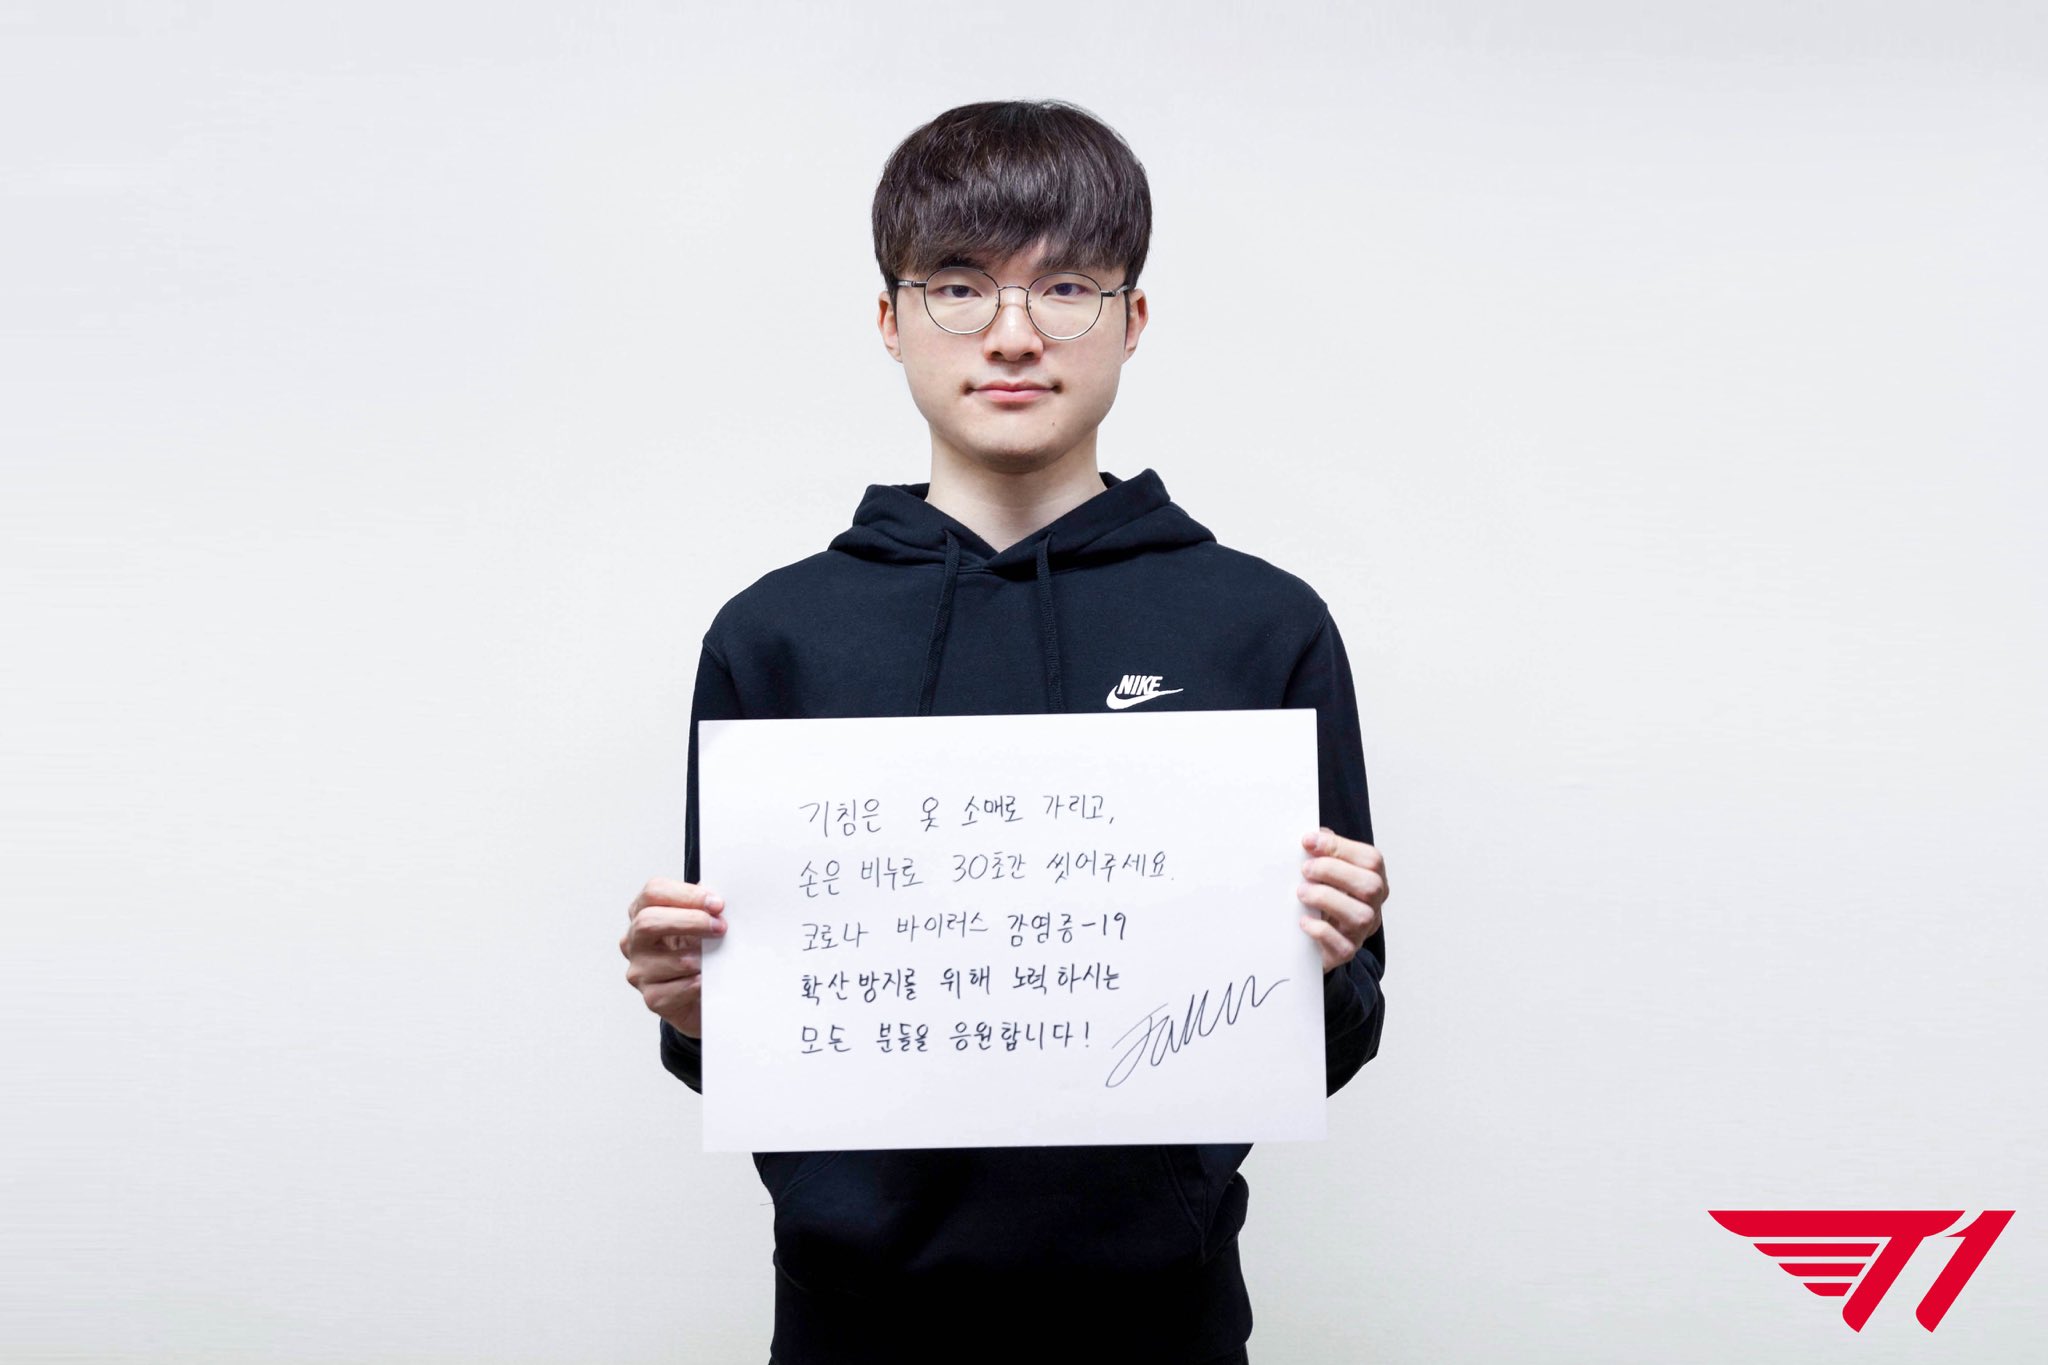 NIKE
기침은 옷 소매로 가리고,
손은 비누로 30초간 씻어주세요.
코로나 바이러스 감염증-19
확산방지를 위해 노력하시는
모든 분들을 응원합니다!
Faker
T1